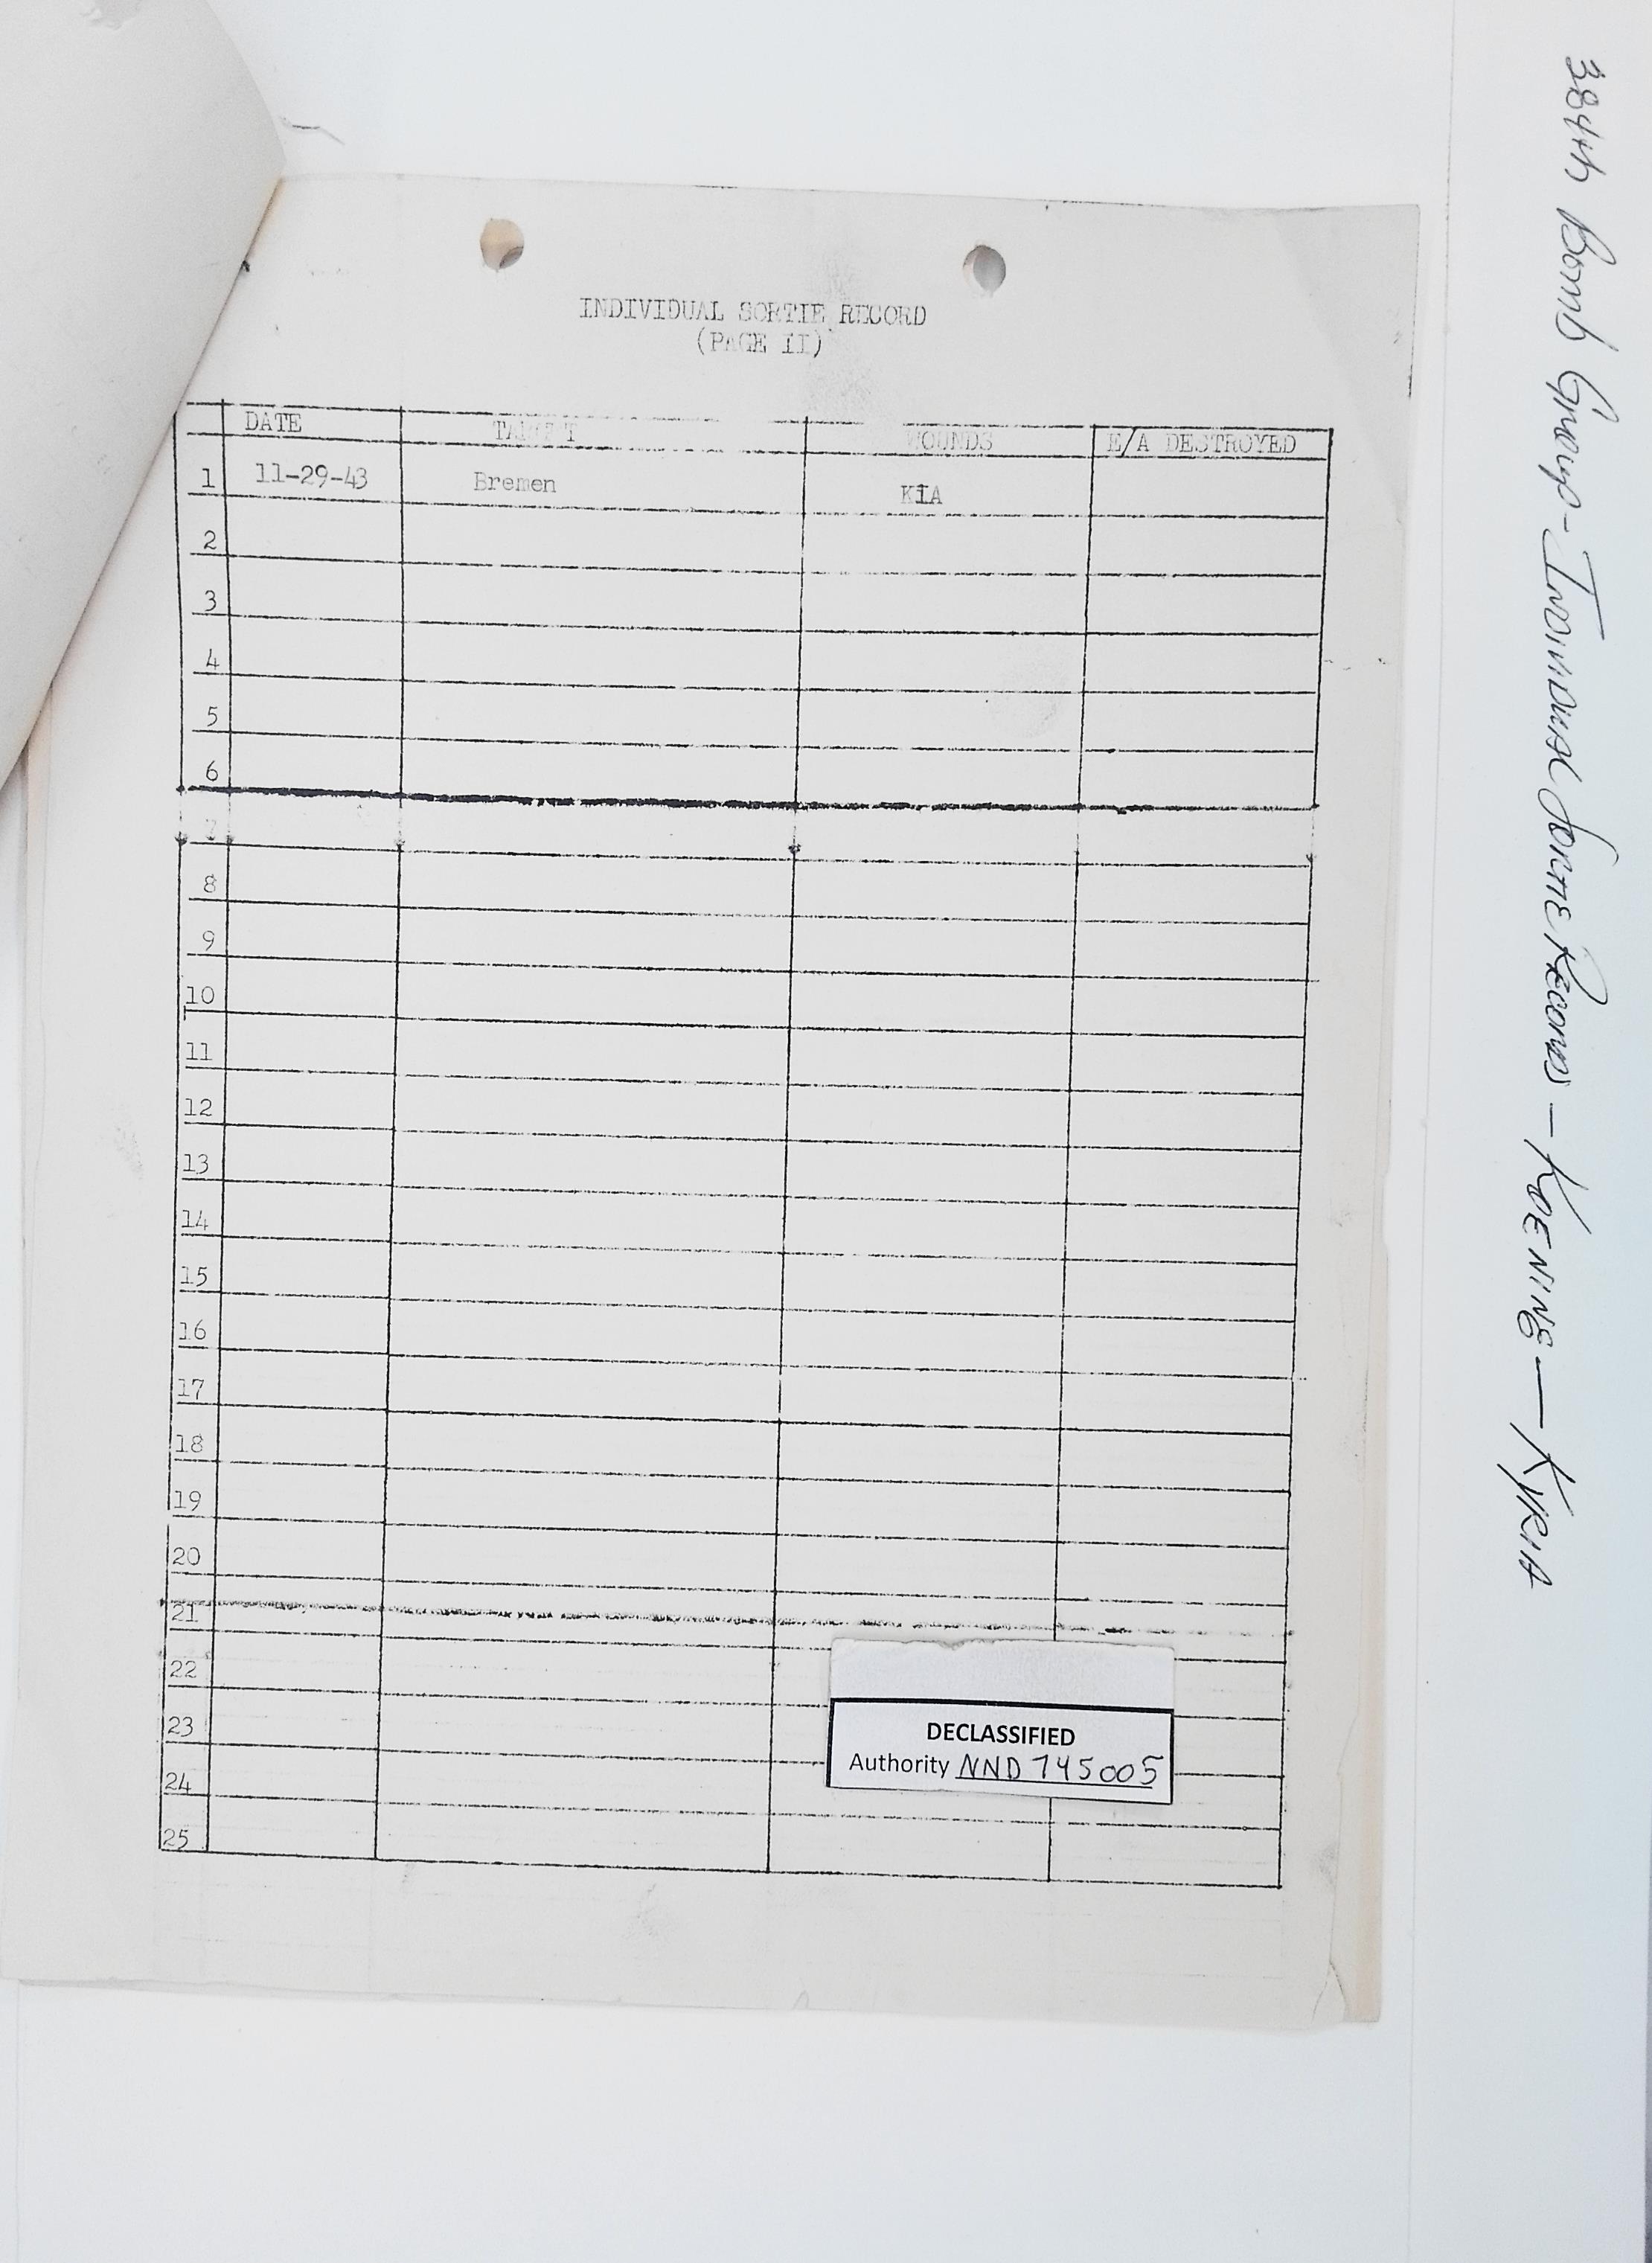 INDIVIDUAL SORTIE RECORD
(PAGE II)
DATE TARGET WOUNDS E/A DESTROYED
1 11-29-43 Bremen KIA
2
3
4
5
6
7
8
9
10
11
12
13
14
15
16
17
18
19
20
21
22
23
24
25
DECLASSIFIED
Authority NND 745005
384th Bomb Group - Individual Sortie Records - KOENING - KYRIA